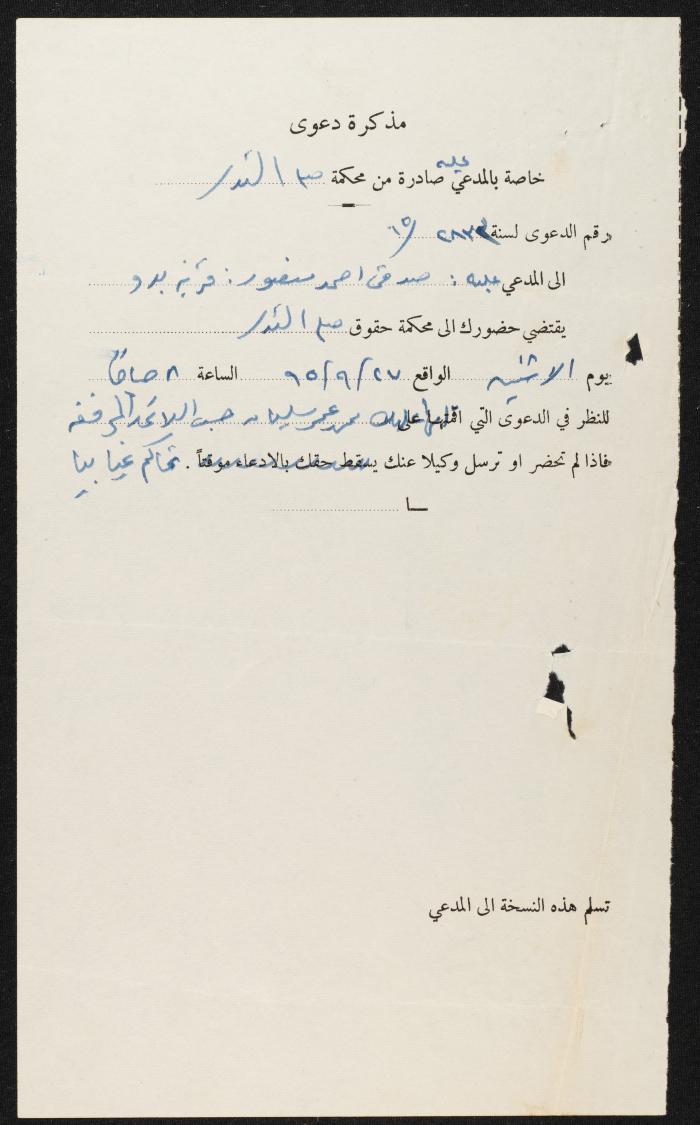 مذكرة دعوى
خاصة بالمدعي عليه صادرة من محكمة صلح القدس
رقم الدعوى لسنة ٦٥/
الى المدعي عليه : صدقي احمد منصور : قرية بدو
يقتضي حضورك الى محكمة حقوق صلح القدس
يوم الاثنين الواقع ٢٧/٩/٦٥ الساعة ٨ صباحاً
للنظر في الدعوى التي اقامها عليك حسب اللائحة المرفقة
فاذا لم تحضر او ترسل وكيلا عنك تحاكم غيابيا
تسلم هذه النسخة الى المدعي